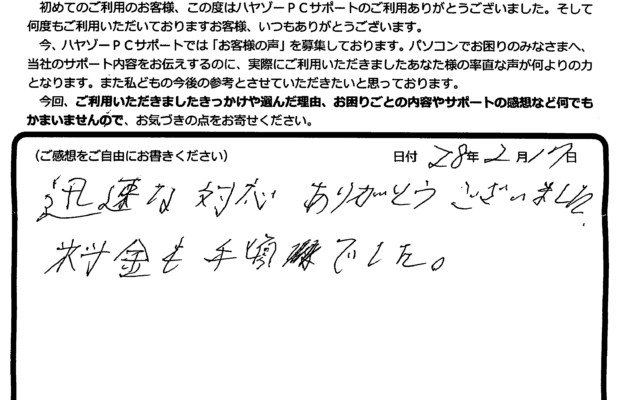 初めてのご利用のお客様、この度はハヤゾーPCサポートのご利用ありがとうございました。そして
何度もご利用いただいておりますお客様、いつもありがとうございます。
今、ハヤゾーPCサポートでは「お客様の声」を募集しております。パソコンでお困りのみなさまへ、
当社のサポート内容をお伝えするのに、実際にご利用いただきましたあなた様の率直な声が何よりの力
となります。また私どもの今後の参考とさせていただきたいと思っております。
今回、ご利用いただきましたきっかけや選んだ理由、お困りごとの内容やサポートの感想など何でも
かまいませんので、お気づきの点をお寄せください。
(ご感想をご自由にお書きください) 日付 28年 2月17日
迅速な対応 ありがとうございました
料金も手頃でした。